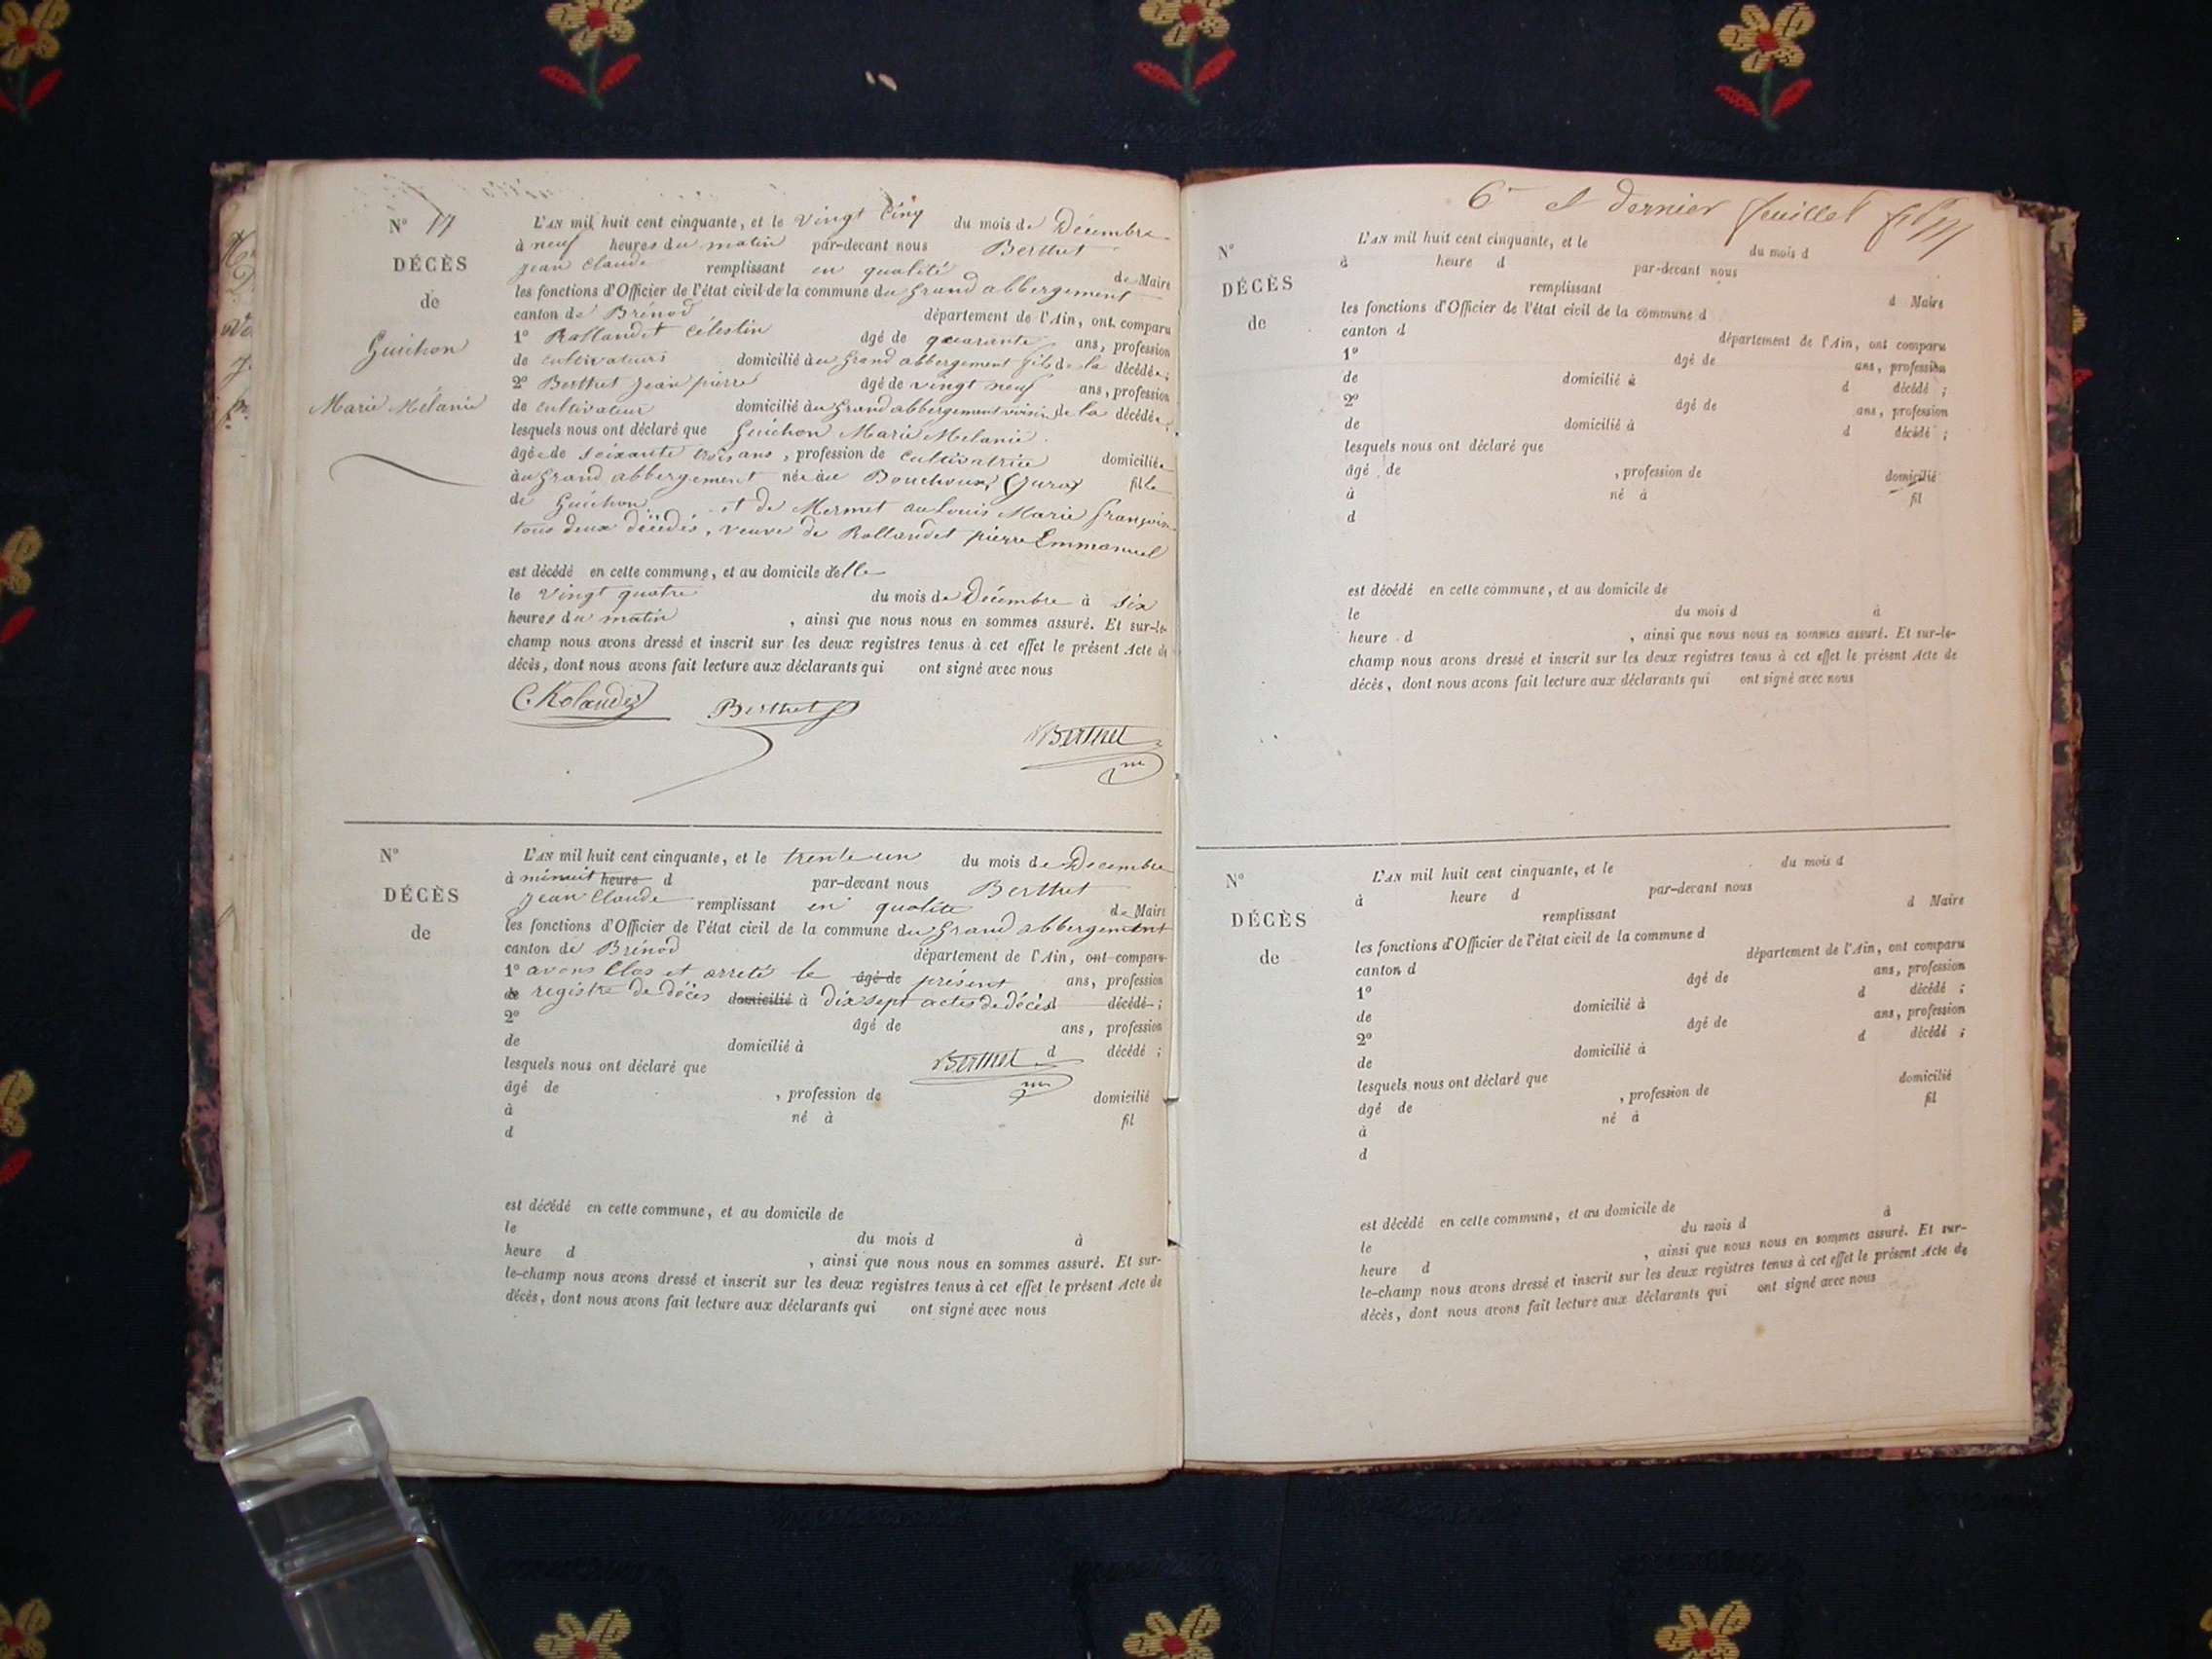 N° 17
DÉCÈS
de
Guichon
Marie Mélanie
L'AN mil huit cent cinquante, et le vingt Cinq du mois de Décembre
à neuf heures du matin par-devant nous Berthet
Jean Claude remplissant en qualité de Maire
les fonctions d'Officier de l'état civil de la commune du Grand abbergement
canton de Brénod département de l'Ain, ont comparu
1° Rollandet Célestin âgé de quarante ans, profession
de cultivateurs domicilié au Grand abbergement fils de la décédée;
2° Berthet Jean pierre âgé de vingt neuf ans, profession
de cultivateur domicilié au Grand abbergement voisin de la décédée;
lesquels nous ont déclaré que Guichon Marie Mélanie
âgée de soixante trois ans, profession de cultivatrice domiciliée
au Grand abbergement née au Bouchoux, (Jura) fille
de Guichon et de Mermet au Louis Marie françoise
tous deux décédés, veuve de Rollandet pierre Emmanuel
est décédé en cette commune, et au domicile d'elle
le vingt quatre du mois de Décembre à six
heures du matin, ainsi que nous nous en sommes assuré. Et sur-le-
champ nous avons dressé et inscrit sur les deux registres tenus à cet effet le présent Acte de
décès, dont nous avons fait lecture aux déclarants qui ont signé avec nous
C. Rolandez Berthet
Berthet
N°
DÉCÈS
de
L'AN mil huit cent cinquante, et le trente un du mois de Decembre
à minuit heure d par-devant nous Berthet
Jean Claude remplissant en qualité de Maire
les fonctions d'Officier de l'état civil de la commune du Grand abbergement
canton de Brénod département de l'Ain, ont comparu
1° avons Clos et arreté le âgé de présent ans, profession
de registre de décès domicilié à dix sept actes de décès d décédé;
2° âgé de ans, profession
de domicilié à d décédé;
Berthet
lesquels nous ont déclaré que
âgé de , profession de domicilié
à né à fil
d
est décédé en cette commune, et au domicile de
le du mois d à
heure d , ainsi que nous nous en sommes assuré. Et sur-
le-champ nous avons dressé et inscrit sur les deux registres tenus à cet effet le présent Acte de
décès, dont nous avons fait lecture aux déclarants qui ont signé avec nous
6e et dernier feuillet
N°
DÉCÈS
de
L'AN mil huit cent cinquante, et le du mois d
à heure d par-devant nous
remplissant d Maire
les fonctions d'Officier de l'état civil de la commune d
canton d département de l'Ain, ont comparu
1° âgé de ans, profession
de domicilié à d décédé;
2° âgé de ans, profession
de domicilié à d décédé;
lesquels nous ont déclaré que
âgé de , profession de domicilié
à né à fil
d
est décédé en cette commune, et au domicile de
le du mois d à
heure d , ainsi que nous nous en sommes assuré. Et sur-le-
champ nous avons dressé et inscrit sur les deux registres tenus à cet effet le présent Acte de
décès, dont nous avons fait lecture aux déclarants qui ont signé avec nous
N°
DÉCÈS
de
L'AN mil huit cent cinquante, et le du mois d
à heure d par-devant nous
remplissant d Maire
les fonctions d'Officier de l'état civil de la commune d
canton d département de l'Ain, ont comparu
1° âgé de ans, profession
de domicilié à d décédé;
2° âgé de ans, profession
de domicilié à d décédé;
lesquels nous ont déclaré que
âgé de , profession de domicilié
à né à fil
d
est décédé en cette commune, et au domicile de
le du mois d à
heure d , ainsi que nous nous en sommes assuré. Et sur-
le-champ nous avons dressé et inscrit sur les deux registres tenus à cet effet le présent Acte de
décès, dont nous avons fait lecture aux déclarants qui ont signé avec nous